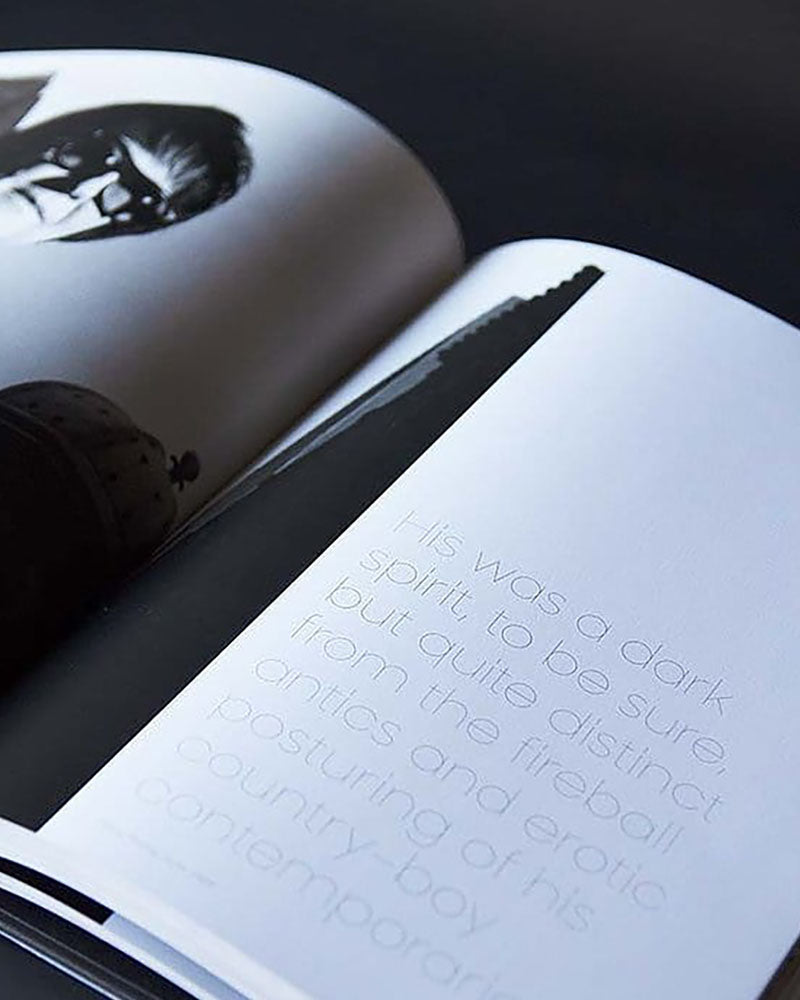 His was a dark
spirit, to be sure,
but quite distinct
from the fireball
antics and erotic
posturing of his
country-boy